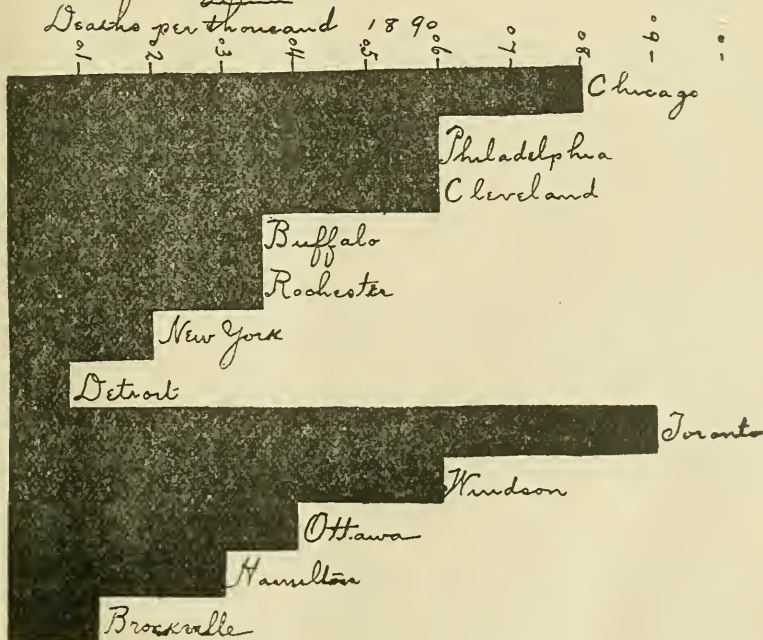 Deaths per thousand 1890
0.1 0.2 0.3 0.4 0.5 0.6 0.7 0.8 0.9
Chicago
Philadelphia
Cleveland
Buffalo
Rochester
New York
Detroit
Toronto
Windsor
Ottawa
Hamilton
Brockville